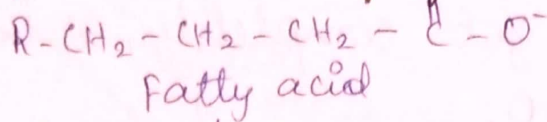 R-CH₂-CH₂-CH₂-C-O⁻
Fatty acid